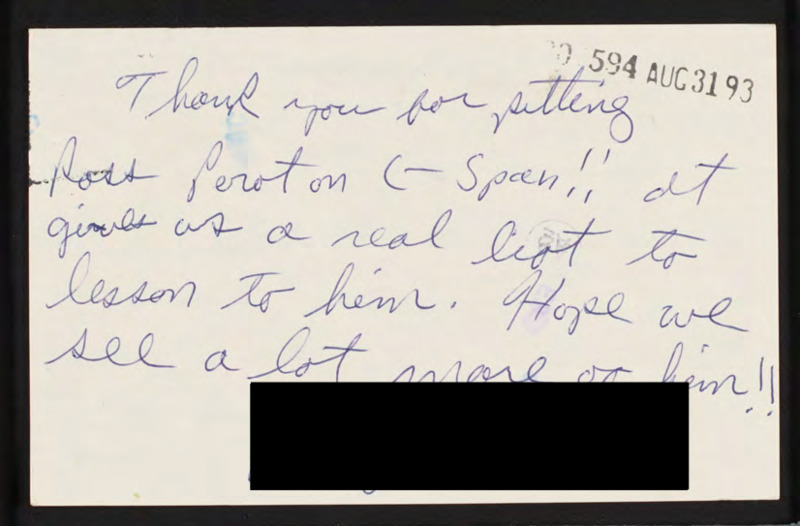 594 AUG 31 93
Thank you for sitting
Ross Perot on C-Span!! It
gives us a real list to
lesson to him. Hope we
see a lot more of him!!